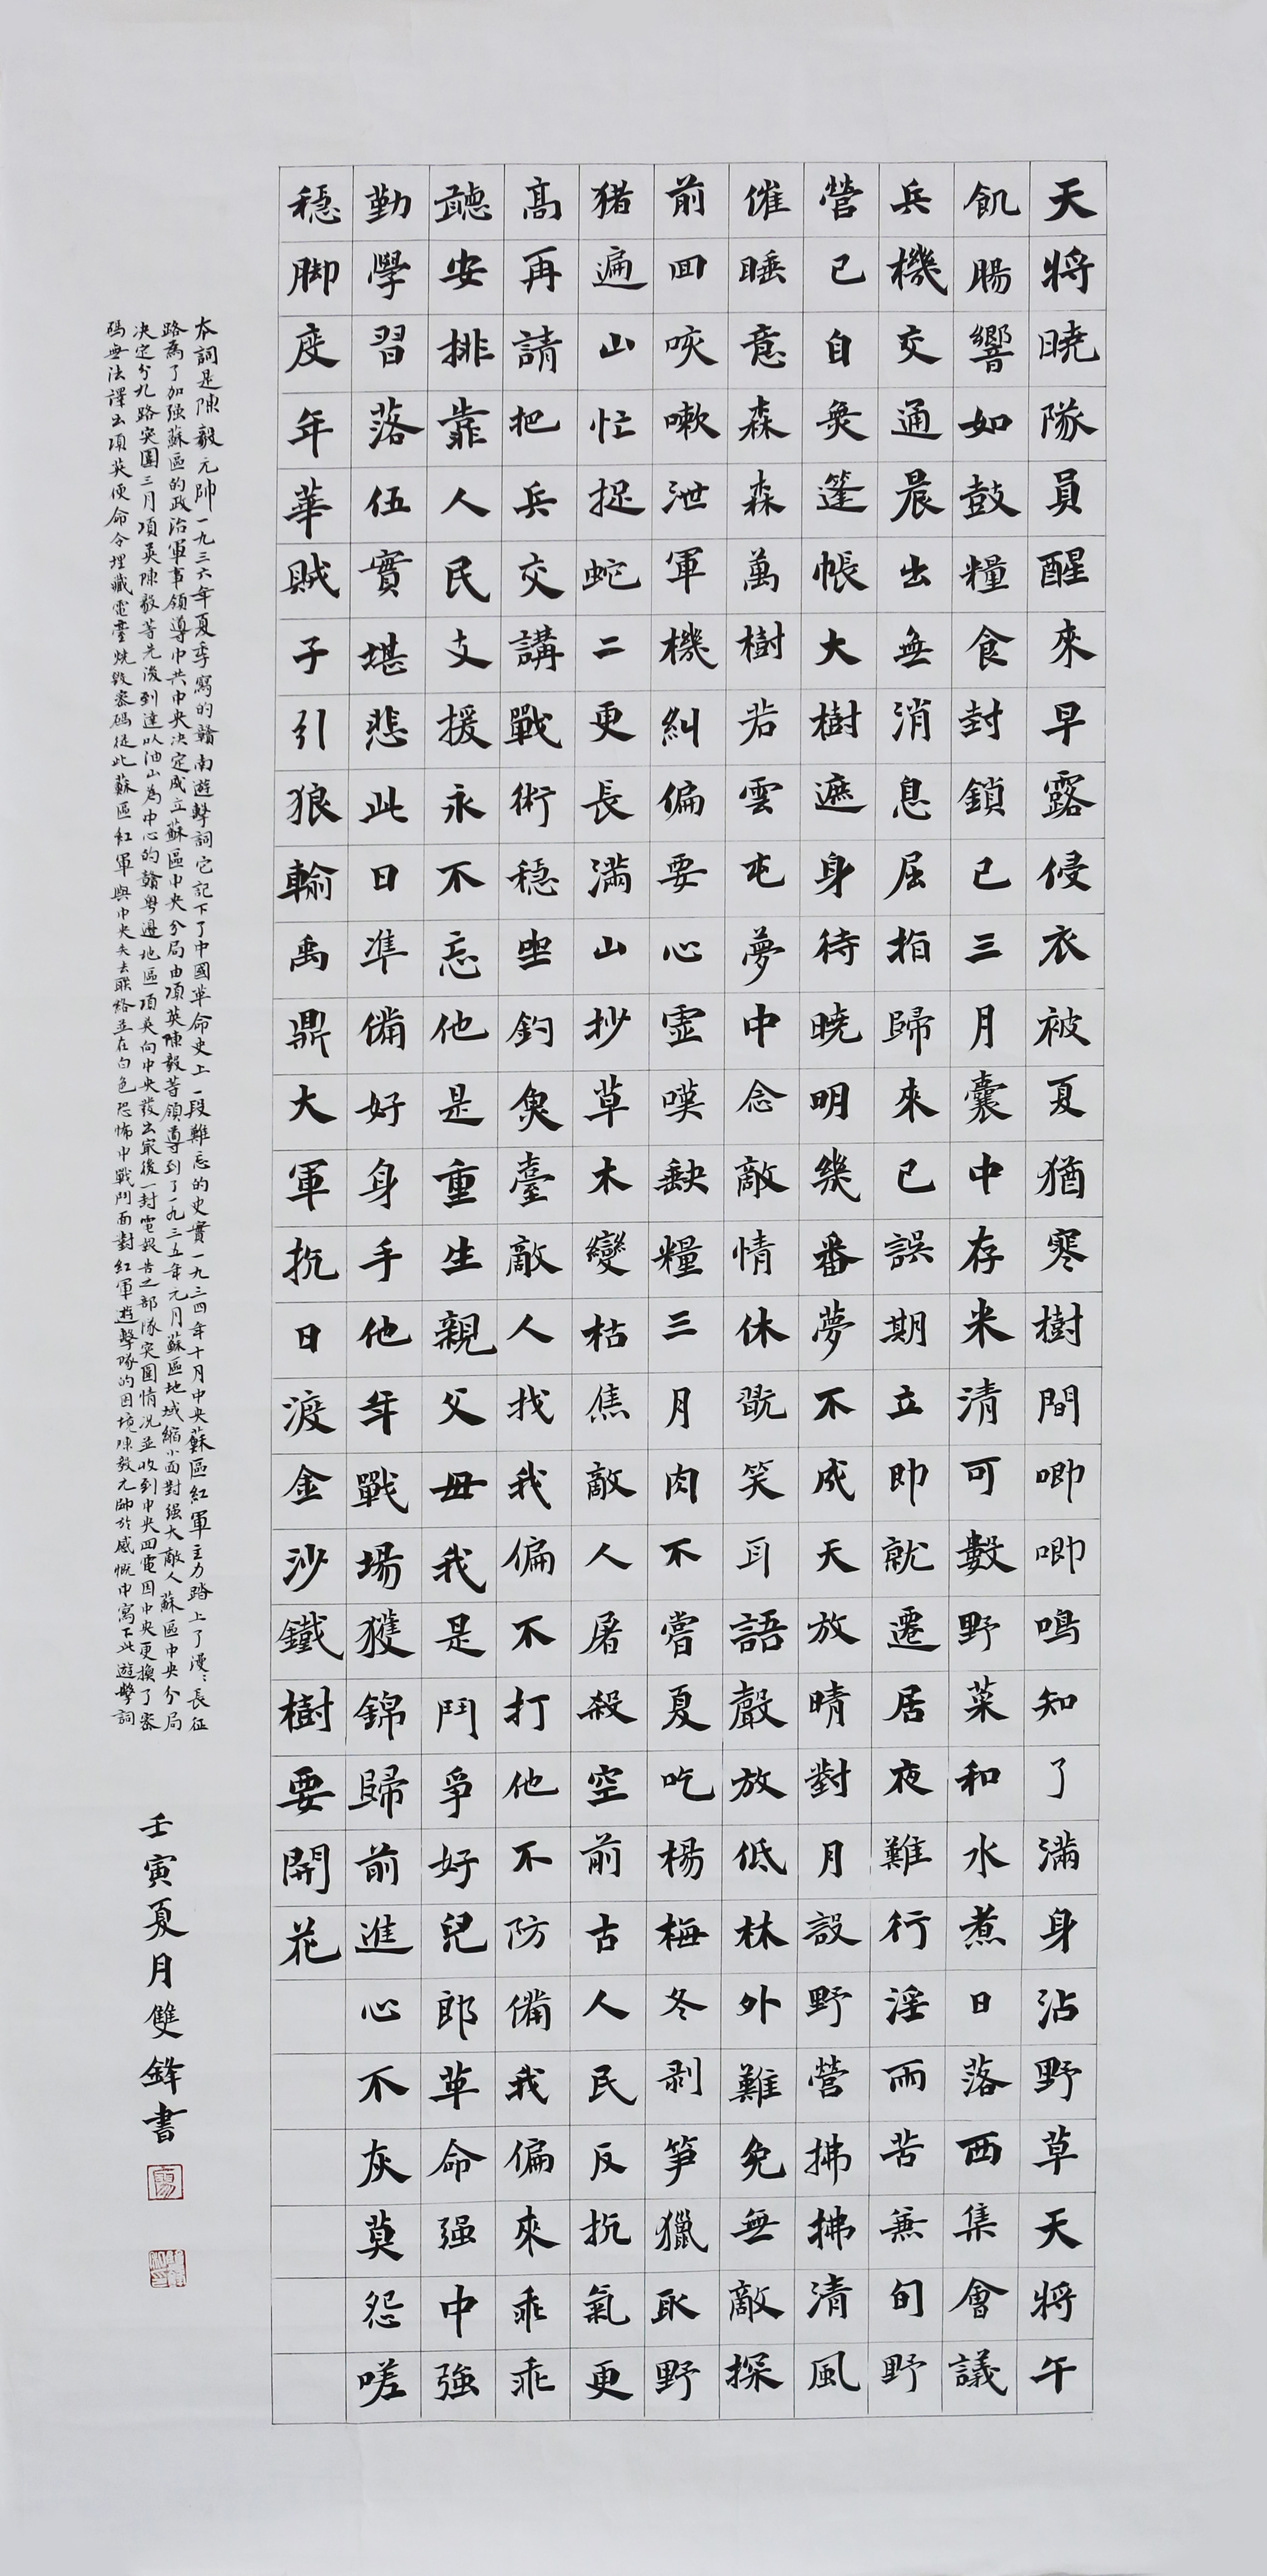 天將曉隊員醒來早露侵衣被夏猶寒樹間唧唧鳴知了滿身沾野草天將午
飢腸響如鼓糧食封鎖已三月囊中存米清可數野菜和水煮日落西集會議
兵機交通晨出無消息屈指歸來已誤期立即就遷居夜難行淫雨苦兼旬野
營已自無篷帳大樹遮身待曉明幾番夢不成天放晴對月設野營拂拂清風
催睡意森森萬樹若雲屯夢中念敵情休玩笑耳語聲放低林外難免無敵探
前回咳嗽泄軍機糾偏要心虛嘆缺糧三月肉不嘗夏吃楊梅冬剥笋獵取野
猪遍山忙捉蛇二更長滿山抄草木變枯焦敵人屠殺空前古人民反抗氣更
高再請把兵交講戰術穩坐釣魚臺敵人找我偏不打他不防備我偏來乖乖
聽安排靠人民支援永不忘他是重生親父母我是鬥爭好兒郎革命强中強
勤學習落伍實堪悲此日準備好身手他年戰場獲錦歸前進心不灰莫怨嗟
穩脚度年華賊子引狼輸禹鼎大軍抗日渡金沙鐵樹要開花
本詞是陳毅元帥一九三六年夏季寫的贛南遊擊詞它記下了中國革命史上一段難忘的史實一九三四年十月中央蘇區紅軍主力踏上了漫漫長征
路爲了加强蘇區的政治軍事領導中共中央决定成立蘇區中央分局由項英陳毅等領導到了一九三五年元月蘇區地域縮小面對强大敵人蘇區中央分局
决定分九路突圍三月項英陳毅等先後到達以油山為中心的贛粤邊地區項英向中央發出最後一封電報告之部隊突圍情况並收到中央回電因中央更換了密
碼無法譯出項英便命令埋藏電臺燒毀密碼從此蘇區紅軍與中央失去聯絡並在白色恐怖中戰鬥面對紅軍遊擊隊的困境陳毅元帥於感慨中寫下此遊擊詞
壬寅夏月雙鋒書